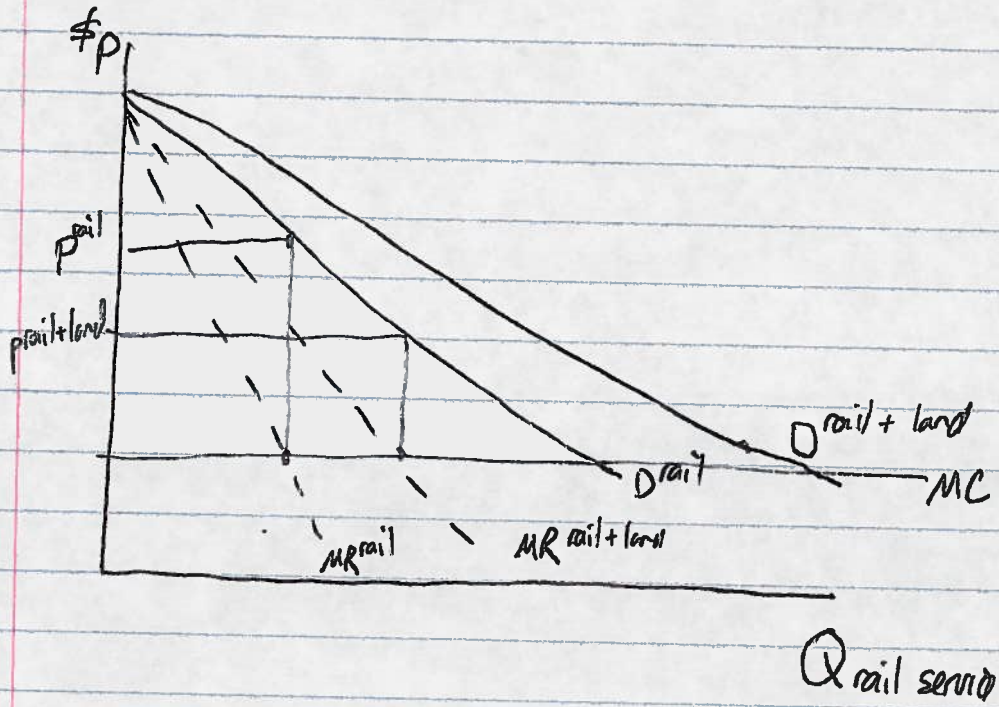 $P
P^rail
P^rail+land
D^rail + land
D^rail
MC
MR^rail
MR^rail+land
Q rail servic